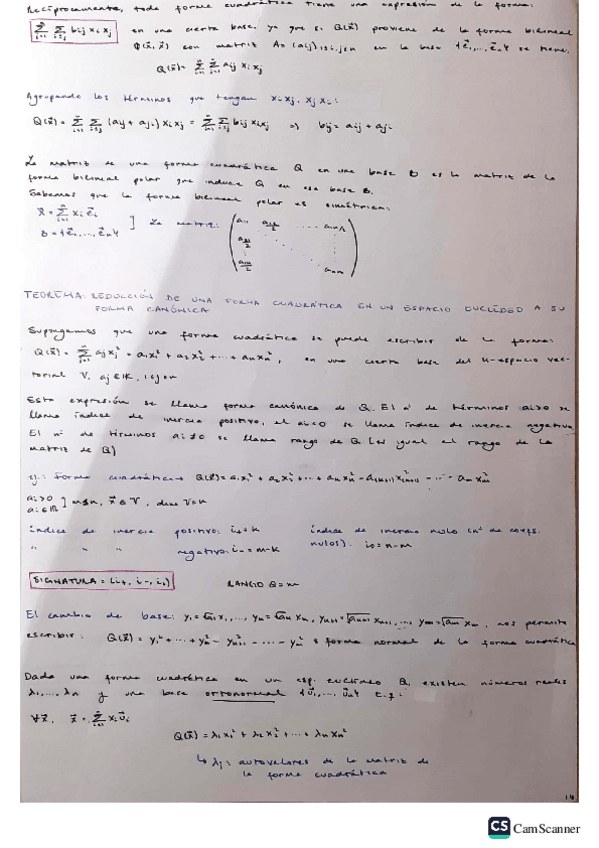 Recíprocamente, toda forma cuadrática tiene una expresión de la forma:
Σ_{i=1}^n Σ_{i≤j} bij xi xj en una cierta base, ya que si Q(x⃗) proviene de la forma bilineal
φ(x⃗, y⃗) con matriz A=(aij)1≤i,j≤n en la base {e⃗1,...,e⃗n} se tiene:
Q(x⃗)= Σ_{i=1}^n Σ_{j=1}^n aij xi xj
Agrupando los términos que tengan xi xj, xj xi:
Q(x⃗)= Σ_{i=1}^n Σ_{i≤j} (aij + aji) xi xj = Σ_{i=1}^n Σ_{i≤j} bij xi xj ⇒ bij = aij + aji
La matriz de una forma cuadrática Q en una base B es la matriz de la
forma bilineal polar que induce Q en esa base B.
Sabemos que la forma bilineal polar es simétrica:
x⃗ = Σ_{i=1}^n xi e⃗i
B = {e⃗1,...,e⃗n} ] La matriz:
TEOREMA: REDUCCIÓN DE UNA FORMA CUADRÁTICA EN UN ESPACIO EUCLÍDEO A SU
FORMA CANÓNICA
Supongamos que una forma cuadrática se puede escribir de la forma:
Q(x⃗) = Σ_{j=1}^n aj xj² = a1x1² + a2x2² + ... + anxn², en una cierta base del n-espacio vec-
torial V, aj ∈ K, 1≤j≤n
Esta expresión se llama forma canónica de Q. El nº de términos ai>0 se
llama índice de inercia positivo, el ai<0 se llama índice de inercia negativo
El nº de términos ai≠0 se llama rango de Q (es igual al rango de la
matriz de Q)
ej: Forma cuadrática → Q(x⃗)= a1x1² + a2x2² + ... + akxk² - a(k+1)x²k+1 - ... - amxm²
ai>0
ai∈R ] m≤n, x⃗ ∈ V, dim V=n
índice de inercia positivo: i+ = k índice de inercia nulo (nº de coefs.
" " " negativo: i- = m-k nulos): i0 = n-m
SIGNATURA = (i+, i-, i0) RANGO Q = m
El cambio de base: y1 = √a1 x1, ..., yk = √ak xk, yk+1 = √ak+1 xk+1, ..., ym = √am xm, nos permite
escribir: Q(x⃗) = y1² + ... + yk² - y²k+1 - ... - ym² forma normal de la forma cuadrática
Dada una forma cuadrática en un esp. euclídeo Q, existen números reales
λ1,..., λn y una base ortonormal {u⃗1,..., u⃗n} t.q:
∀x⃗, x⃗ = Σ_{i=1}^n xi u⃗i
Q(x⃗) = λ1x1² + λ2x2² + ... + λnxn²
↳ λj: autovalores de la matriz de
la forma cuadrática
14
CS CamScanner